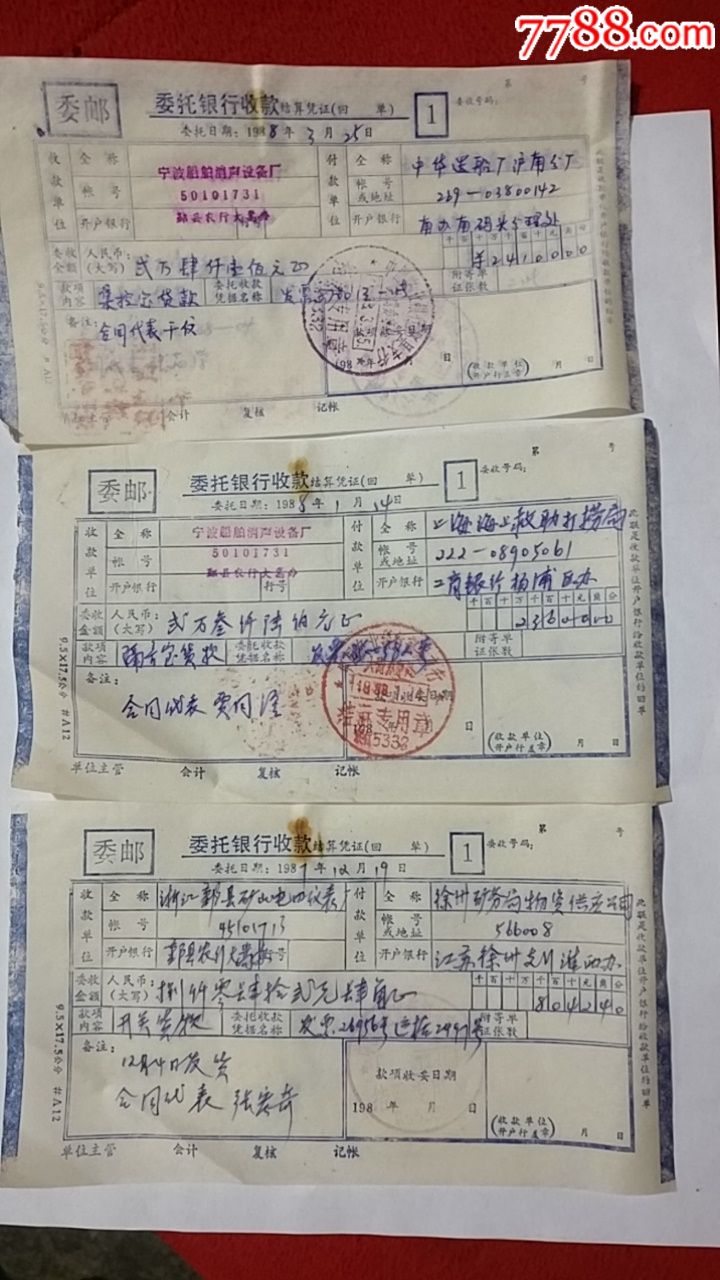 7788.com
第 号
委邮 委托银行收款结算凭证(回 单) 1 委收号码:
委托日期: 1988年3月25日
收款单位 全称 宁波船舶消声设备厂 付款单位 全称 中华造船厂沪南分厂
帐号 50101731 帐号或地址 269-03800142
开户银行 鄞县农行大嵩办 行号 开户银行 南办南码头分理处
委收金额 人民币:(大写) 贰万肆仟壹佰元正 千百十万千百十元角分 ¥2410000
款项内容 集控室货款 委托收款凭据名称 发票 附寄单证张数
备注: 合同代表
198 年 月 日 (收款单位开户行盖章) 月 日
会计 复核 记帐
第 号
委邮 委托银行收款结算凭证(回 单) 1 委收号码:
委托日期: 1988年1月14日
收款单位 全称 宁波船舶消声设备厂 付款单位 全称 上海海上救助打捞局
帐号 50101731 帐号或地址 222-08905061
开户银行 鄞县农行大嵩办 行号 开户银行 工商银行杨浦区办
委收金额 人民币:(大写) 贰万叁仟陆佰元正 千百十万千百十元角分 2360000
款项内容 隔音室货款 委托收款凭据名称 发票 附寄单证张数
备注: 合同代表 贾同
结算专用章
5332
198 年 月 日 (收款单位开户行盖章) 月 日
单位主管 会计 复核 记帐
9.5×17.5公分 #A12
此联是收款单位开户银行给收款单位的回单
第 号
委邮 委托银行收款结算凭证(回 单) 1 委收号码:
委托日期: 1987年12月19日
收款单位 全称 浙江鄞县矿山电四仪表厂 付款单位 全称 徐州矿务局物资供应公司
帐号 45101713 帐号或地址 566008
开户银行 鄞县农行大嵩 行号 开户银行 江苏徐州支行淮西办
委收金额 人民币:(大写) 捌仟零肆拾贰元肆角正 千百十万千百十元角分 804240
款项内容 开关货款 委托收款凭据名称 发票26956号运杂2997号 附寄单证张数
备注: 12月4日发货
合同代表 张宏奇
款项收妥日期
198 年 月 日 (收款单位开户行盖章) 月 日
单位主管 会计 复核 记帐
9.5×17.5公分 #A12
此联是收款单位开户银行给收款单位的回单